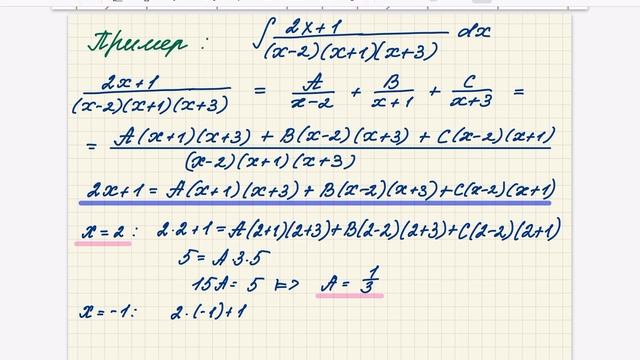 Пример: ∫ (2x+1)/((x-2)(x+1)(x+3)) dx
(2x+1)/((x-2)(x+1)(x+3)) = A/(x-2) + B/(x+1) + C/(x+3) =
= (A(x+1)(x+3) + B(x-2)(x+3) + C(x-2)(x+1))/((x-2)(x+1)(x+3))
2x+1 = A(x+1)(x+3) + B(x-2)(x+3) + C(x-2)(x+1)
x=2: 2·2+1 = A(2+1)(2+3)+B(2-2)(2+3)+C(2-2)(2+1)
5 = A 3·5
15A = 5 => A = 1/3
x=-1: 2·(-1)+1